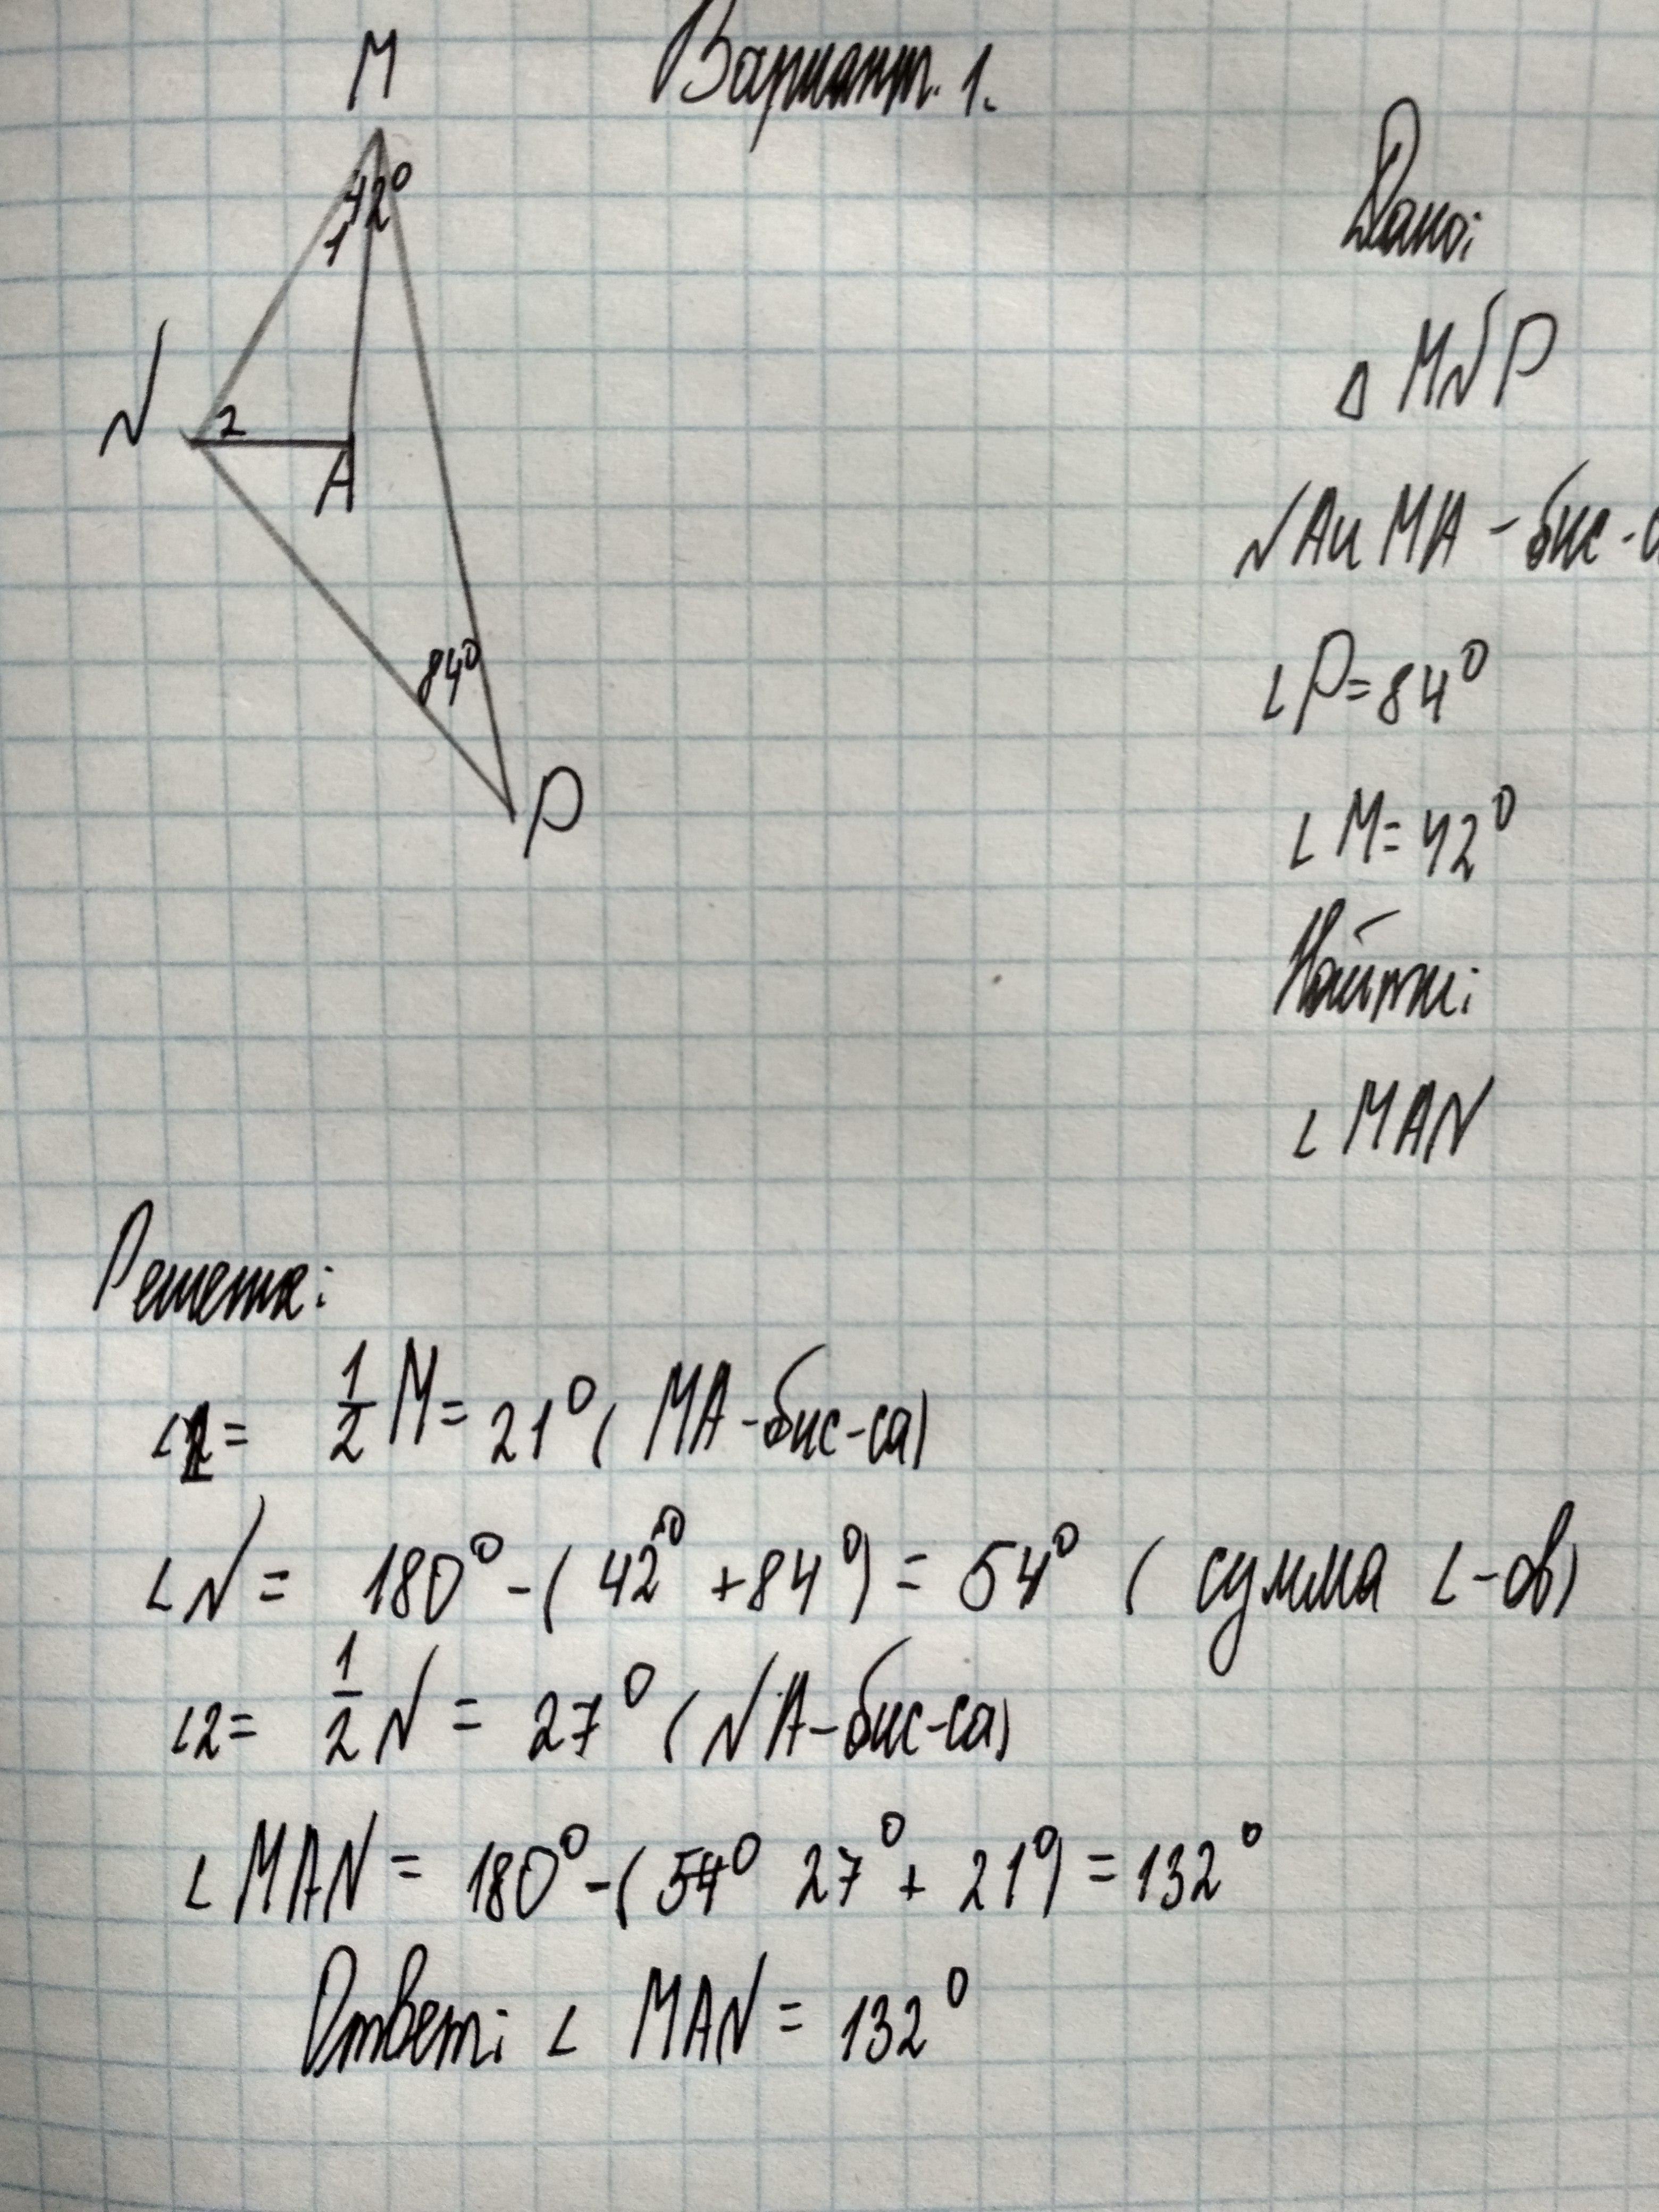 Вариант. 1.
М
42°
1
N
2
А
84°
Р
Дано:
Δ MNP
NA и МА - бис-
∠P=84°
∠ М=42°
Найти:
∠ MAN
Решение:
∠1= 1/2 М= 21° ( МА-бис-са)
∠N= 180°-( 42° +84°)= 54° ( сумма ∠-ов)
∠2= 1/2 N= 27° (NA-бис-са)
∠ MAN= 180°-( 54° 27°+ 21°)=132°
Ответ: ∠ MAN= 132°